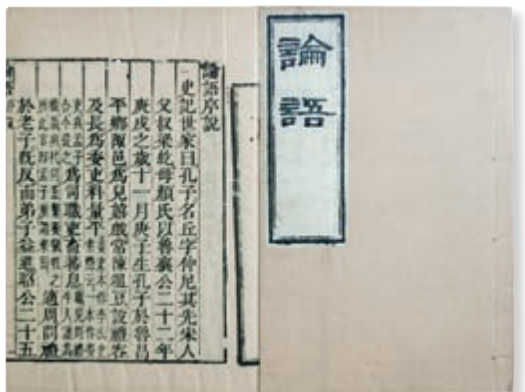 論語
論語序說
史記世家曰孔子名丘字仲尼其先宋人
父叔梁紇母顏氏以魯襄公二十二年
庚戌之歲十一月庚子生孔子於魯昌
平鄉陬邑爲兒嬉戲常陳俎豆設禮容
及長爲委吏料量平
爲司職吏畜蕃息
適周問禮
於老子既反而弟子益進昭公二十五